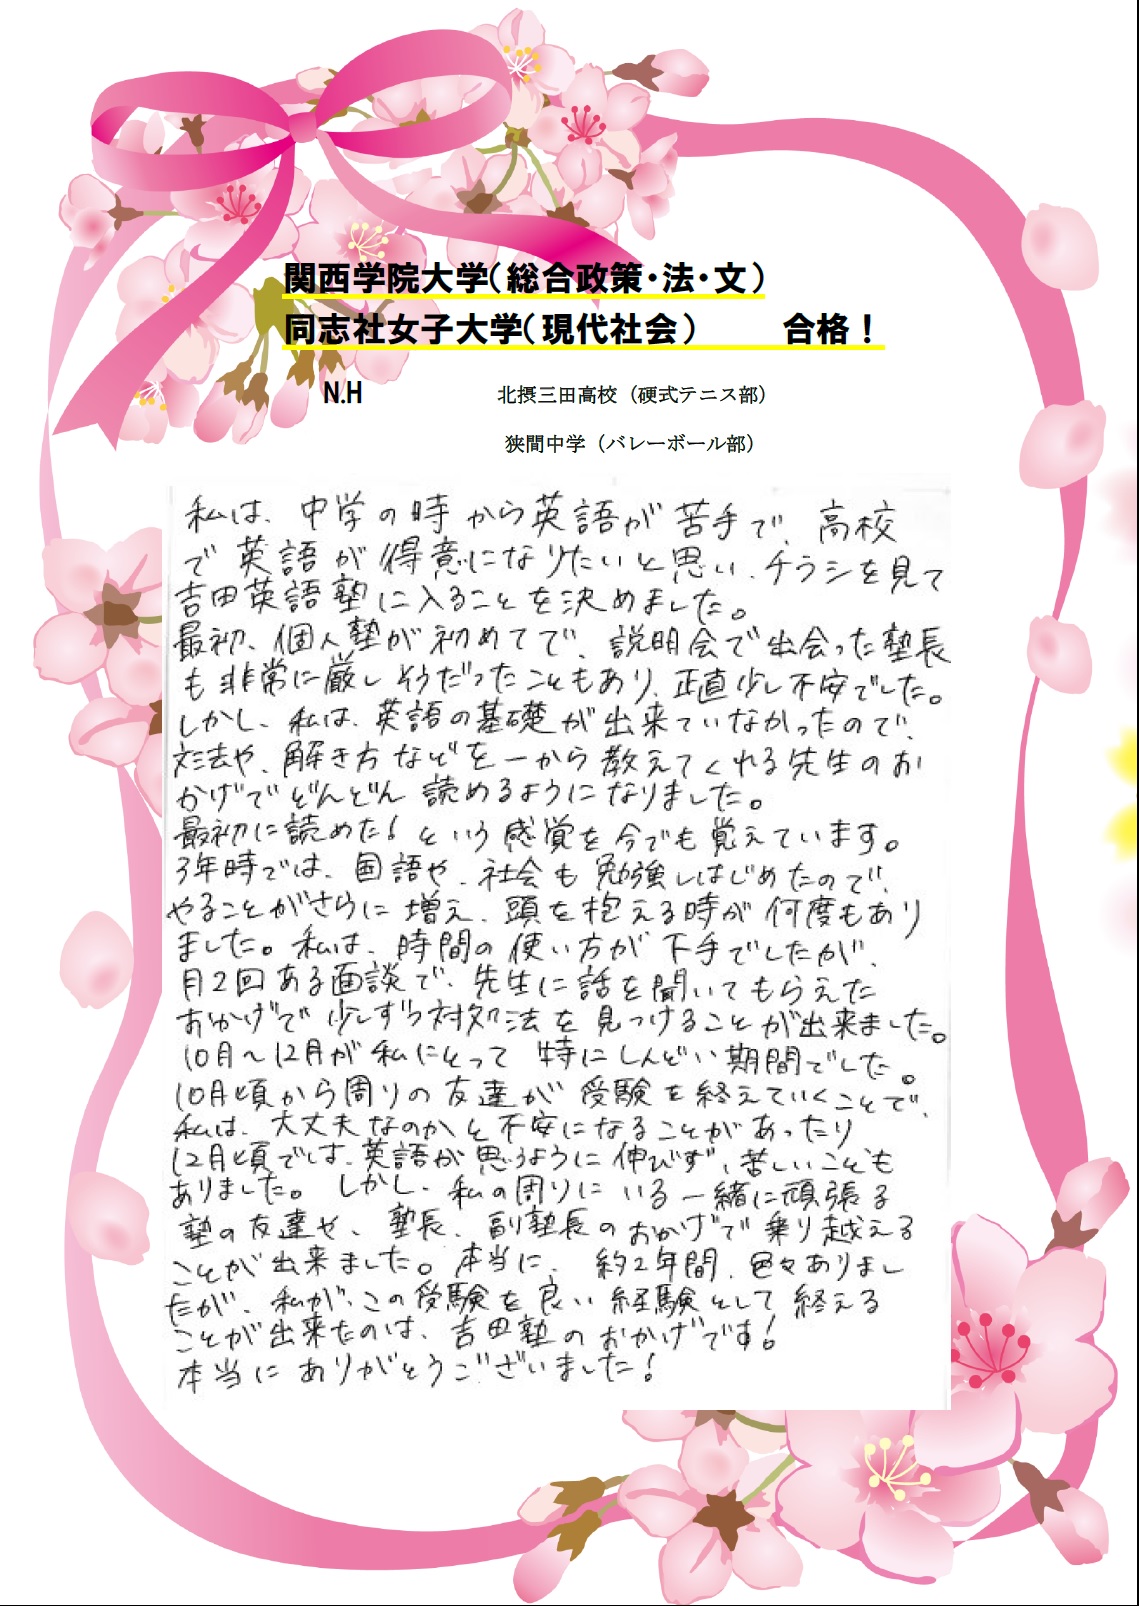 関西学院大学(総合政策・法・文)
同志社女子大学(現代社会) 合格!
N.H 北摂三田高校(硬式テニス部)
狭間中学(バレーボール部)
私は、中学の時から英語が苦手で、高校
で英語が得意になりたいと思い、チラシを見て
吉田英語塾に入ることを決めました。
最初、個人塾が初めてで、説明会で出会った塾長
も非常に厳しそうだったこともあり、正直少し不安でした。
しかし、私は、英語の基礎が出来ていなかったので、
文法や、解き方などを一から教えてくれる先生のお
かげでどんどん読めるようになりました。
最初に読めた!という感覚を今でも覚えています。
3年時では、国語や、社会も勉強しはじめたので、
やることがさらに増え、頭を抱える時が何度もあり
ました。私は、時間の使い方が下手でしたが、
月2回ある面談で、先生に話を聞いてもらえた
おかげで少しずつ対処法を見つけることが出来ました。
10月〜12月が私にとって特にしんどい期間でした。
10月頃から周りの友達が受験を終えていくことで、
私は、大丈夫なのかと不安になることがあったり
12月頃では、英語が思うように伸びず、苦しいことも
ありました。しかし、私の周りにいる一緒に頑張る
塾の友達や、塾長、副塾長のおかげで乗り越える
ことが出来ました。本当に、約2年間、色々ありまし
たが、私が、この受験を良い経験として終える
ことが出来たのは、吉田塾のおかげです!
本当にありがとうございました!